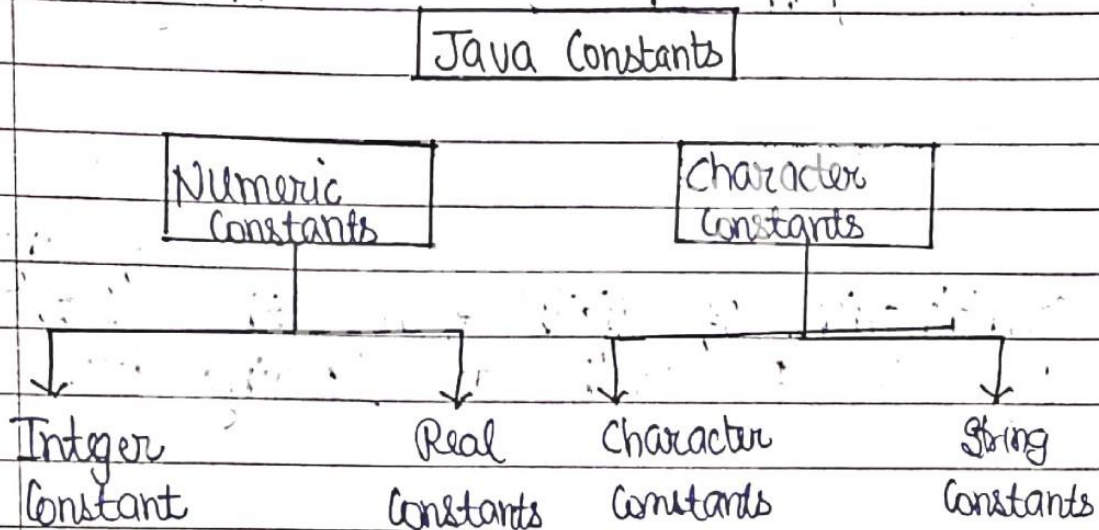 Java Constants
Numeric
Constants
Character
Constants
Integer
Constant
Real
Constants
Character
Constants
String
Constants